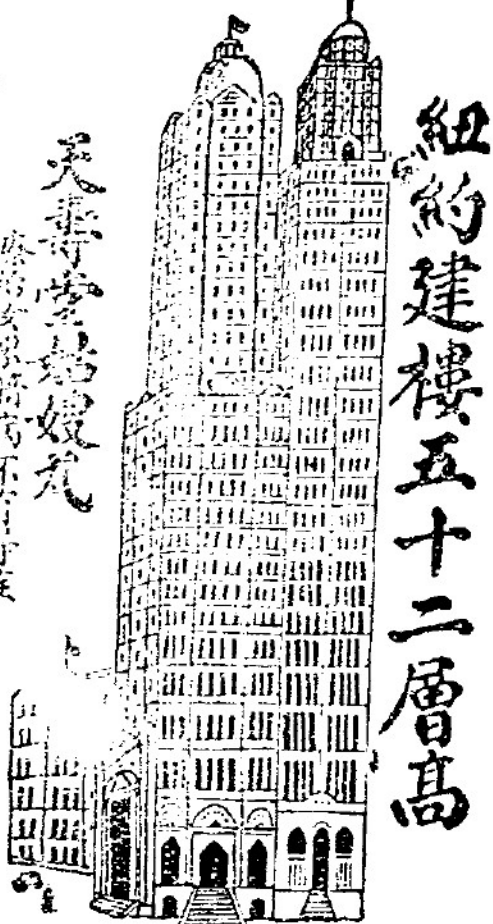 紐約建樓五十二層高
天壽堂姑嫂丸